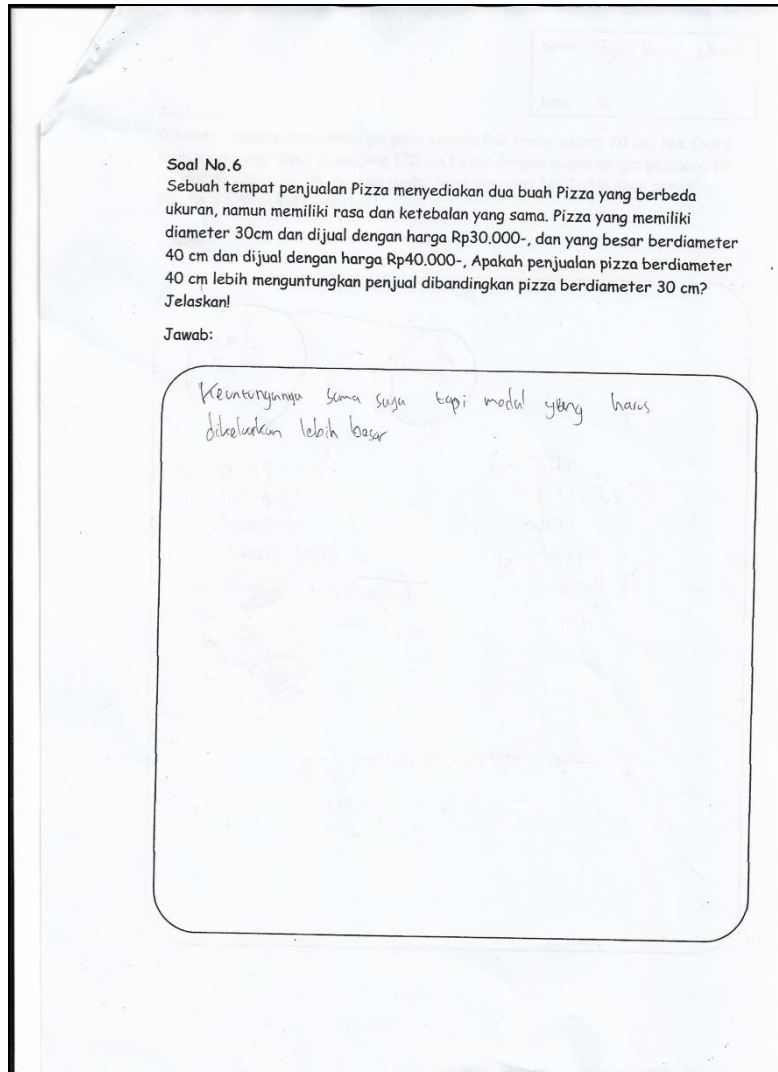 Soal No.6
Sebuah tempat penjualan Pizza menyediakan dua buah Pizza yang berbeda
ukuran, namun memiliki rasa dan ketebalan yang sama. Pizza yang memiliki
diameter 30cm dan dijual dengan harga Rp30.000-, dan yang besar berdiameter
40 cm dan dijual dengan harga Rp40.000-, Apakah penjualan pizza berdiameter
40 cm lebih menguntungkan penjual dibandingkan pizza berdiameter 30 cm?
Jelaskan!
Jawab:
Keuntungannya sama saja tapi modal yang harus
dikeluarkan lebih besar